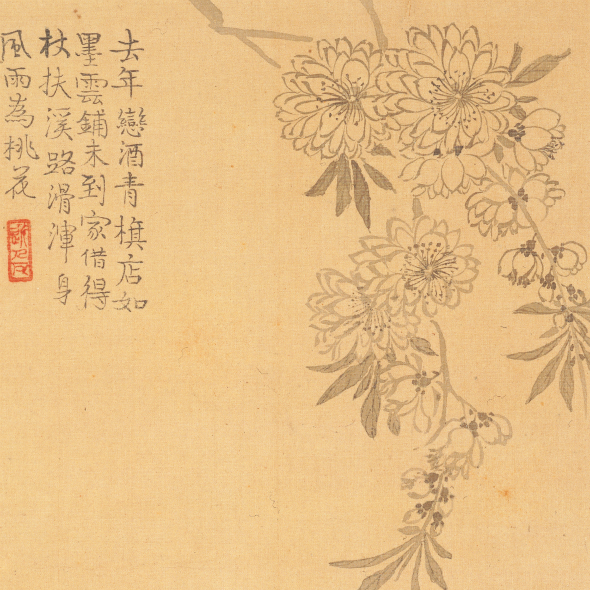 去年戀酒青旗店如
墨雲鋪未到家借得
杖扶溪路滑渾身
風雨為桃花